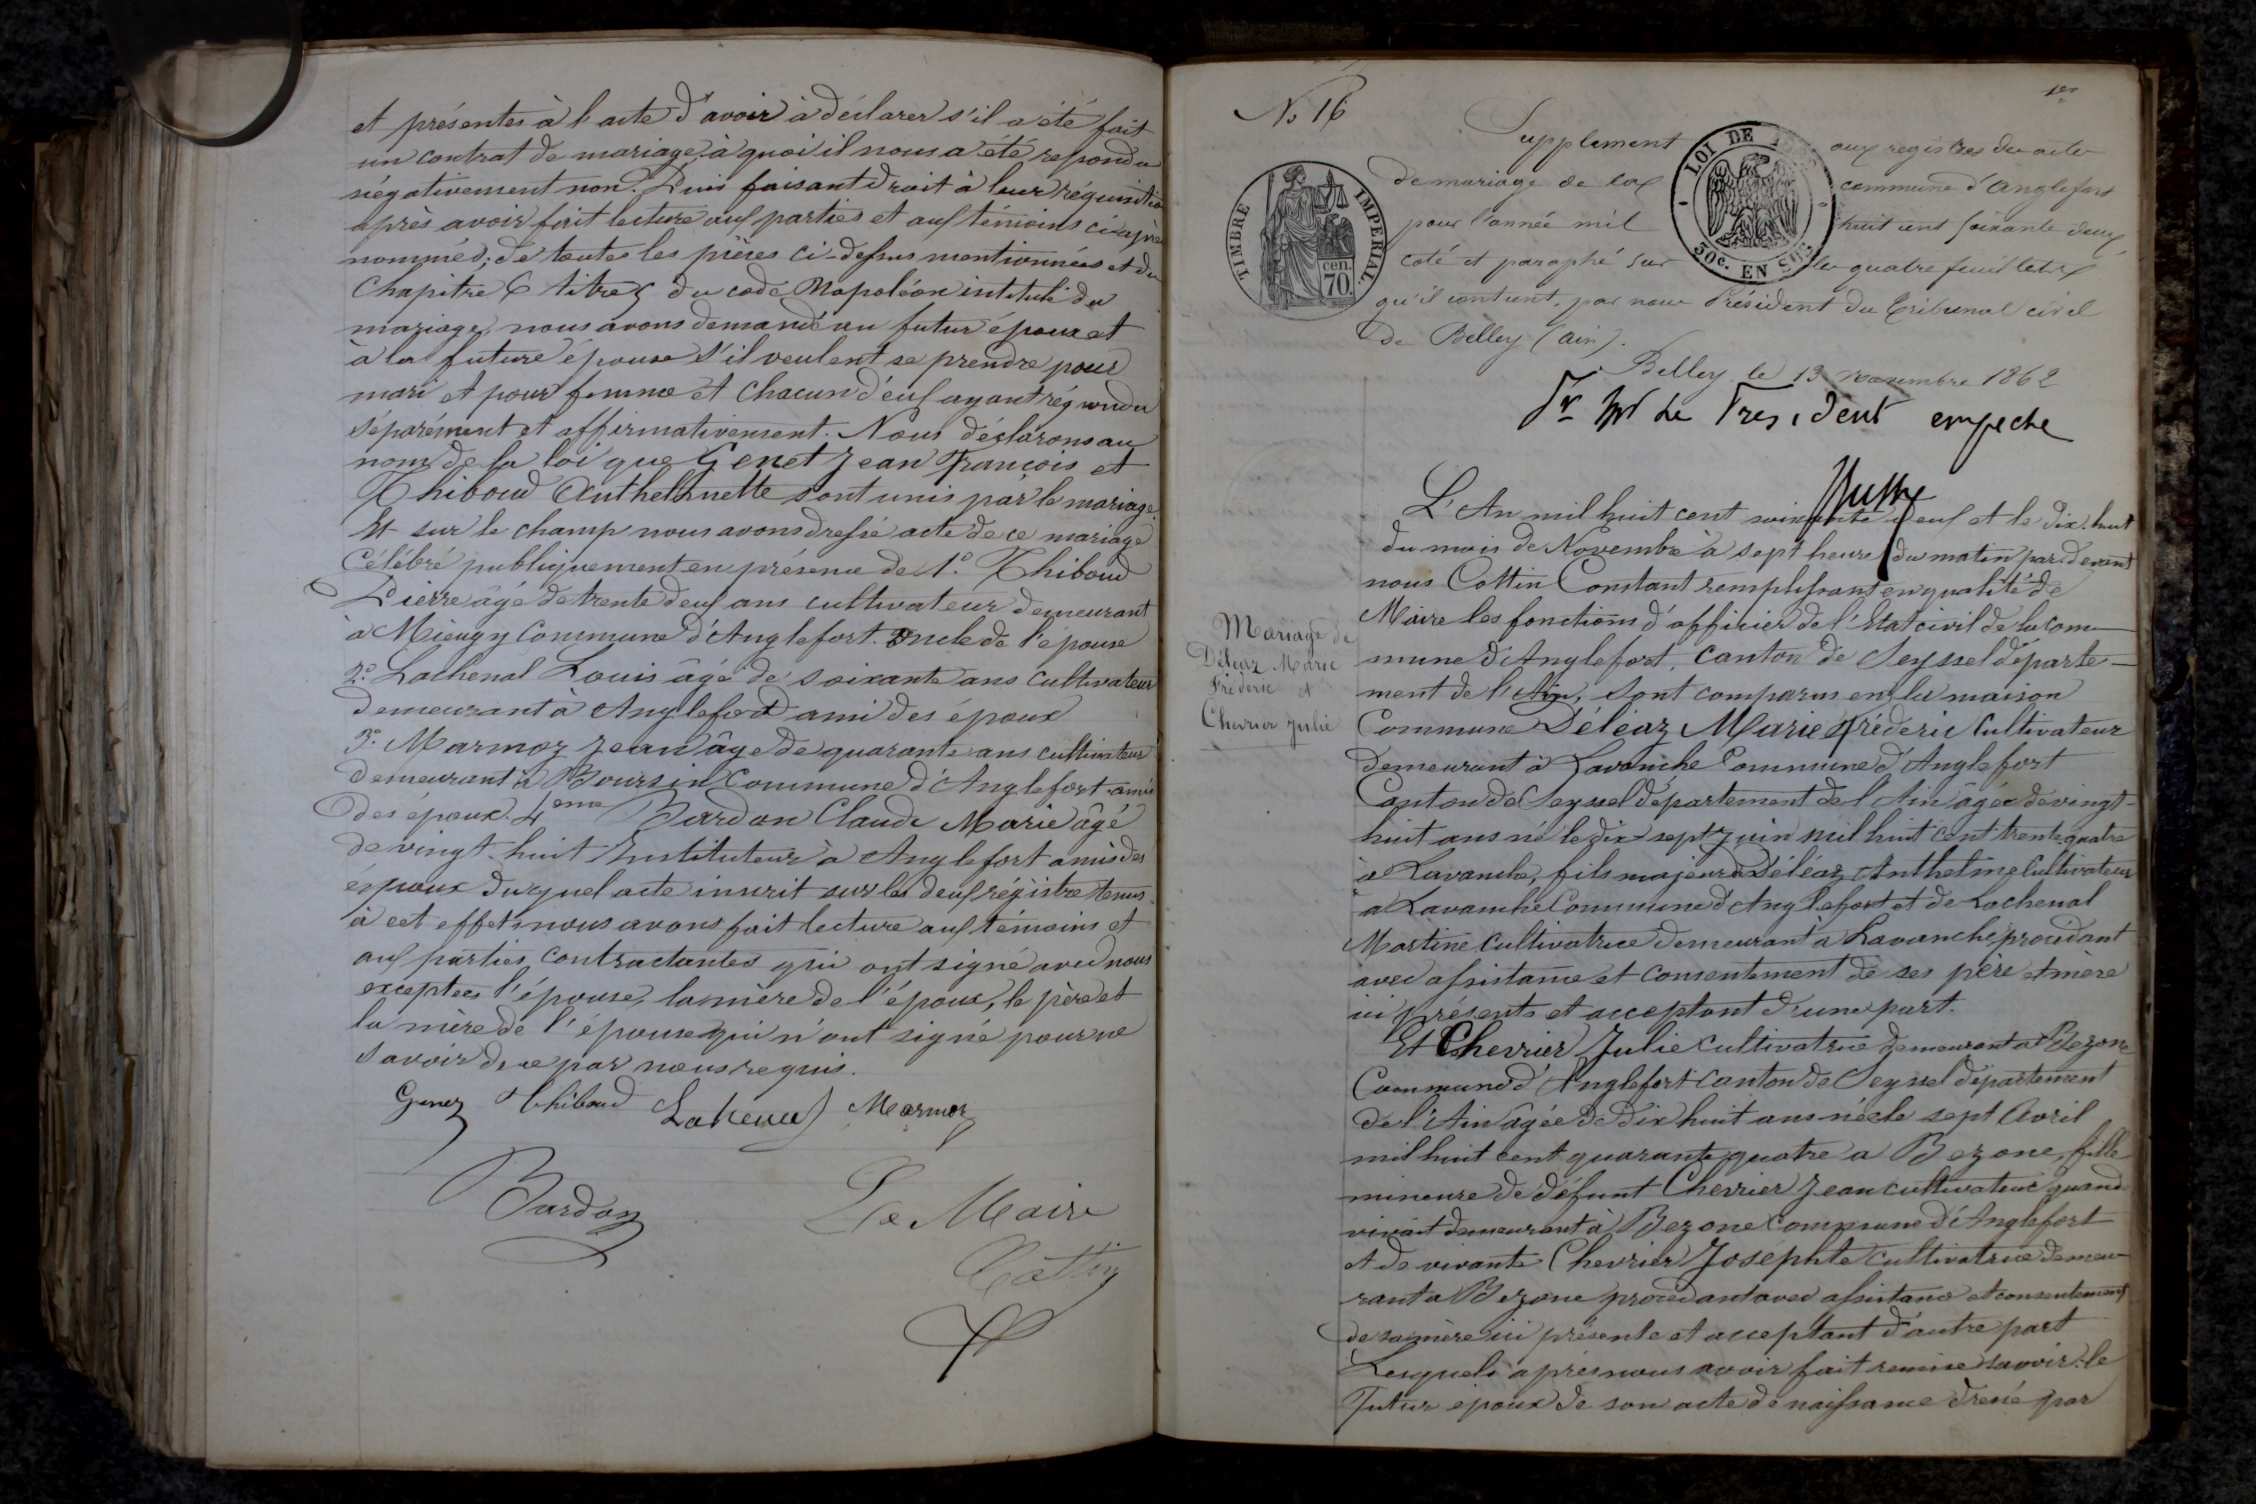 et présentes à l'acte d'avoir à déclarer s'il a été fait
un contrat de mariage, à quoi il nous a été repondu
négativement non. Puis faisant droit à leur réquisition
après avoir fait lecture aux parties et aux témoins ci-après
nommés; de toutes les pièces ci-dessus mentionnées et du
Chapitre 6 titre 5 du code Napoléon intitulé du
mariage, nous avons demandé au futur époux et
à la future épouse s'il veulent se prendre pour
mari et pour femme et chacun d'eux ayant répondu
séparément et affirmativement. Nous déclarons au
nom de la loi que Genet Jean François et
Thiboud Anthelmette sont unis par le mariage.
Et sur le champ nous avons dressé acte de ce mariage
célébré publiquement en présence de 1º. Thiboud
Pierre âgé de trente deux ans cultivateur demeurant
à Mieugy Commune d'Anglefort. oncle de l'épouse
2º. Lachenal Louis âgé de soixante ans cultivateur
demeurant à Anglefort ami des époux
3º. Marmoz Jean âge de quarante ans cultivateur
demeurant à Boursin Commune d'Anglefort ami
des époux. 4eme Bardon Claude Marie âgé
de vingt-huit Instituteur à Anglefort amis des
époux duquel acte inscrit sur les deux régistre tenus
à cet effet nous avons fait lecture aux témoins et
aux parties contractantes qui ont signé avec nous
exceptees l'épouse, la mère de l'époux, le père et
la mère de l'épouse qui n'ont signé pour ne
savoir de ce par nous requis.
Genez Thiboud Lachenal Marmoz
Bardon Le Maire
Cottin
No 16
1er
Supplement aux registres des actes
de mariage de la commune d'Anglefort
pour l'année mil huit cent soixante deux
coté et paraphé sur les quatre feuillets
qu'il contient, par nous Président du Tribunal civil
de Belley (Ain).
TIMBRE IMPERIAL
70 cen.
LOI DE
50c. EN SUS
Belley le 13 novembre 1862
Pr Mr le President empeche
L'An mil huit cent soixante deux et le dix-huit
du mois de Novembre à sept heures du matin par devant
nous Cottin Constant remplissant en qualité de
Maire les fonctions d'officier de l'Etat civil de la com-
mune d'Anglefort, canton de Seyssel départe-
ment de l'Ain, sont comparus en la maison
Mariage de
Déléaz Marie
Fréderic et
Chevrier Julie
Commune Déléaz Marie Fréderic Cultivateur
demeurant à Lavanche Commune d'Anglefort
Canton de Seyssel département de l'Ain âgée de vingt-
huit ans né le dix-sept Juin mil huit cent trente quatre
à Lavanche, fils majeur de Déléaz Anthelme Cultivateur
à Lavanche Commune d'Anglefort et de Lachenal
Martine cultivatrice demeurant à Lavanche procédant
avec assistance et consentement de ses père et mère
ici présents et acceptant d'une part.
Et Chevrier Julie cultivatrice demeurant a Bezone
Commune d'Anglefort canton de Seyssel département
de l'Ain âgée de dix huit ans née le sept Avril
mil huit cent quarante quatre a Bezone, fille
mineure de défunt Chevrier Jean cultivateur quand
vivait demeurant à Bezone commune d'Anglefort
et de vivante Chevrier Josephte cultivatrice demeu-
rant a Bezone procédant avec assistance et consentement
de sa mère ici présente et acceptant d'autre part
Lesquels après nous avoir fait remise savoir: le
Futur époux de son acte de naissance dressé par